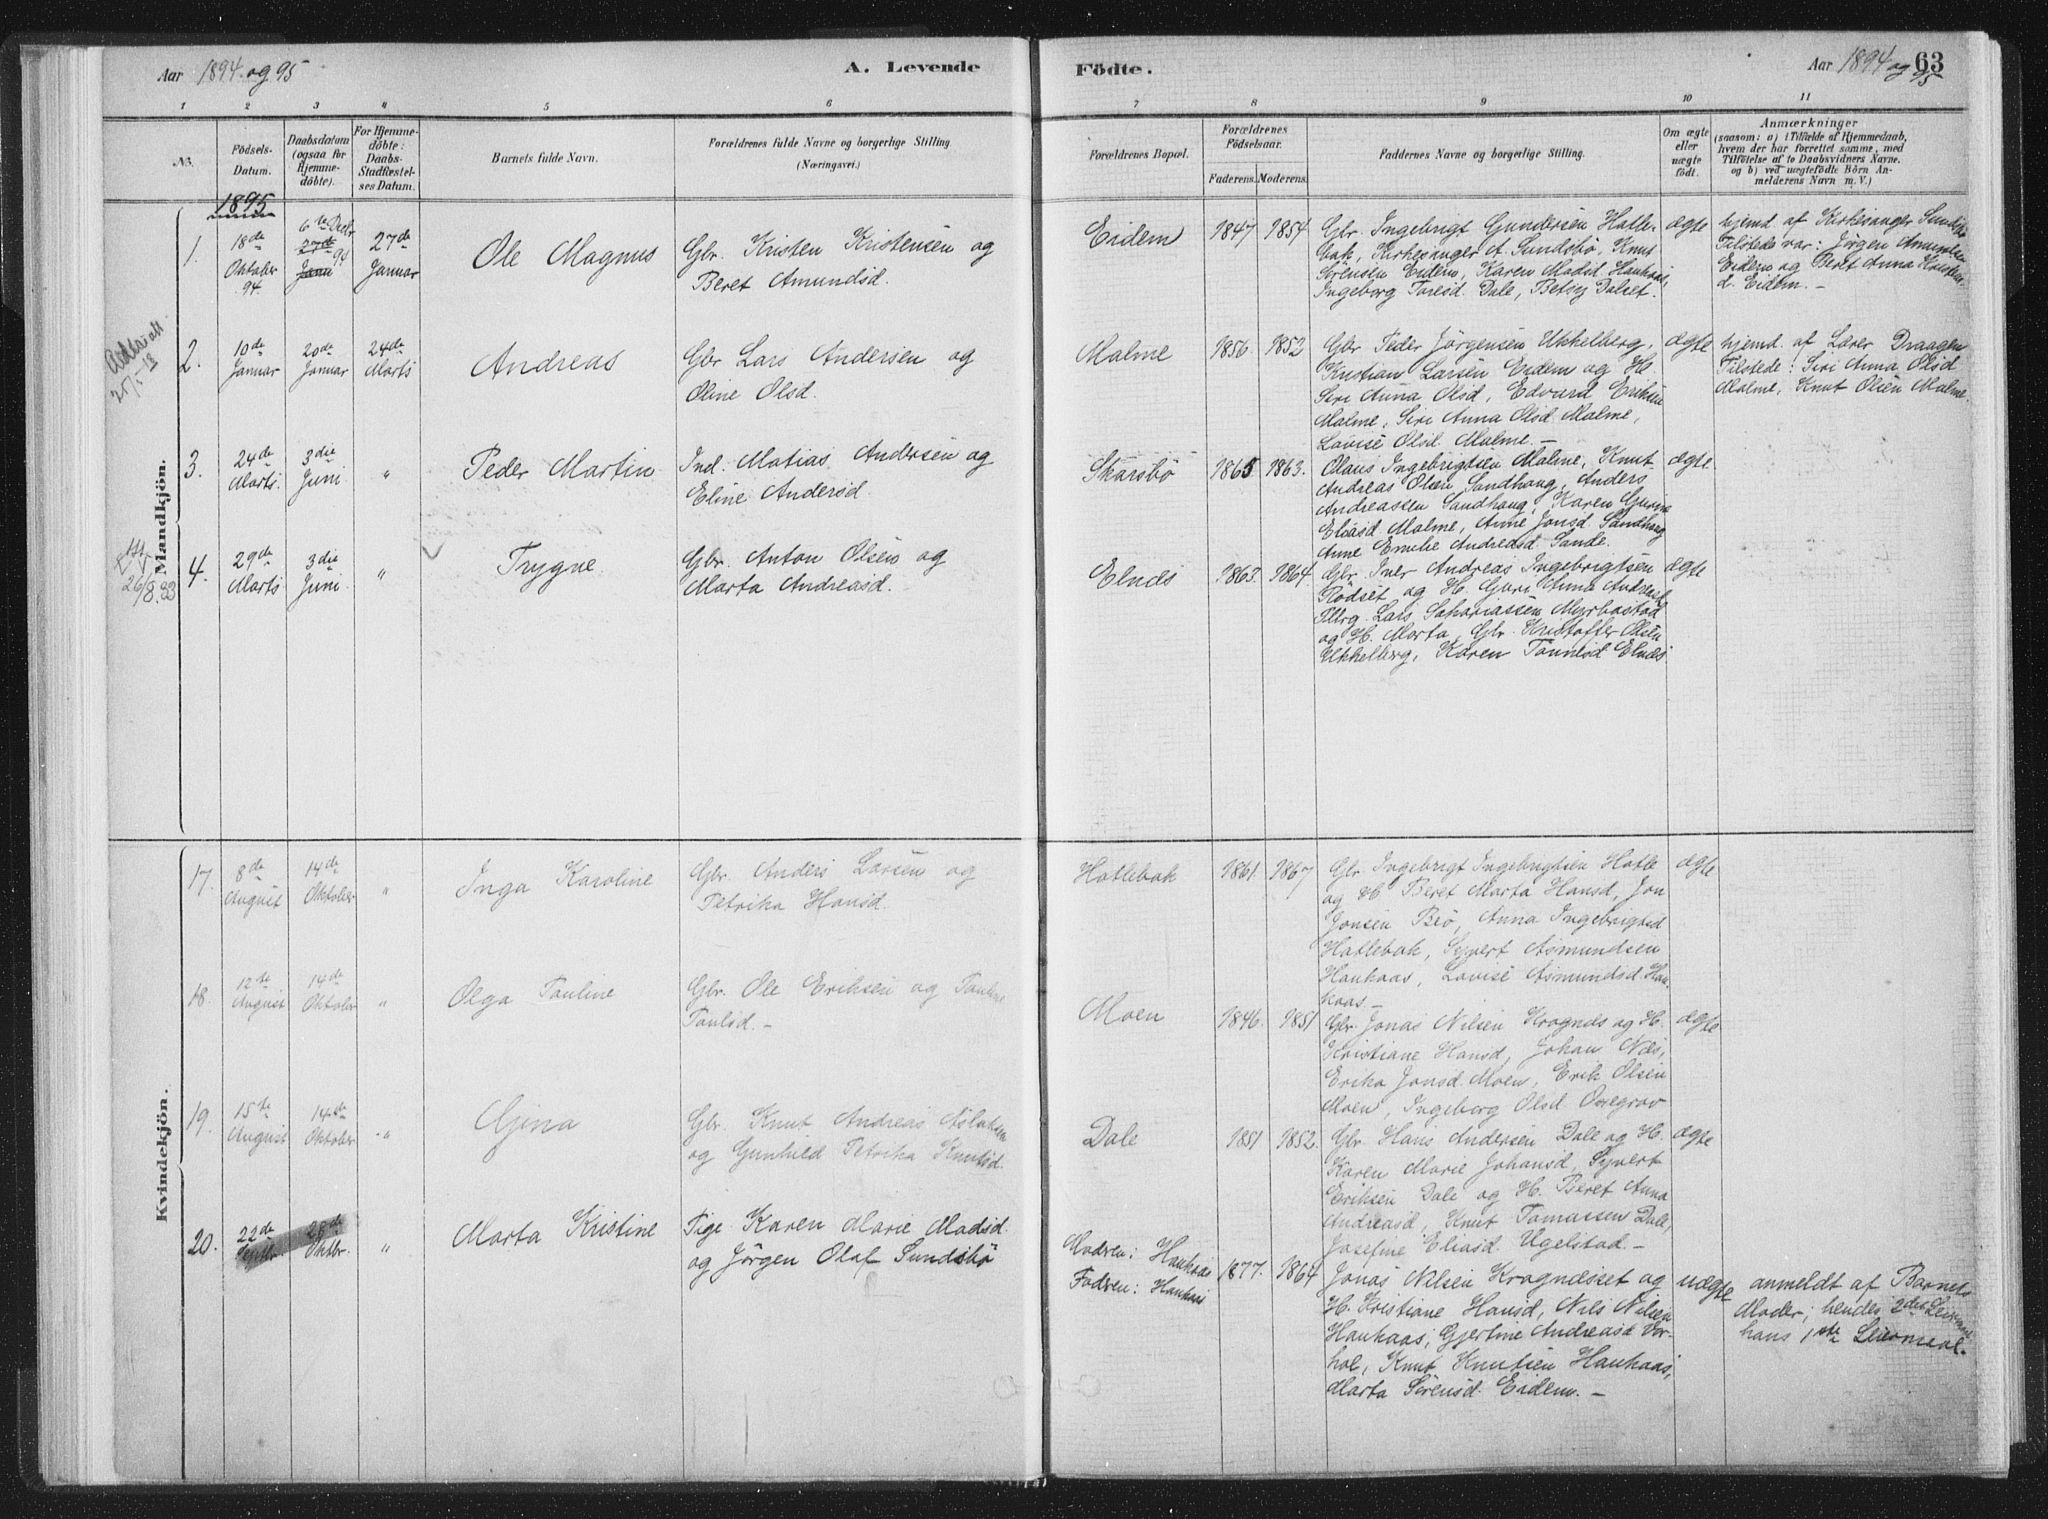 Aar 1894 og 95
A. Levende
Födte.
Aar 1894 og 95
63
1 2 3 4 5 6 7 8 9 10 11
No.
Födsels-
Datum.
Daabsdatum
(ogsaa for
Hjemme-
döbte).
For Hjemme-
döbte:
Daabs-
Stadfæstel-
ses Datum.
Barnets fulde Navn.
Forældrenes fulde Navne og borgerlige Stilling
(Næringsvei.)
Forældrenes Bopæl.
Forældrenes
Födselsaar.
Faderens. Moderens.
Faddernes Navne og borgerlige Stilling.
Om ægte
eller
uægte
födt.
Anmærkninger
(saasom: a) i Tilfælde af Hjemmedaab,
hvem der har forrettet samme, med
Tilföielse af to Daabsvidners Navne.
og b) ved uægtefödte Börn An-
melderens Navn m. V.)
Mandkjön.
1895
1.
18de
Oktober
94.
6te Decbr
94
27de
Janu
27de
Januar
Ole Magnus
Gbr. Kristen Kristensen og
Beret Amundsd.
Eidem
1847 1854
Gbr. Ingebrigt Gundersen Hatle-
bak, Kirkesanger A. Sundsbö, Knut
Sörensen Eidem, Karen Madsd. Haukaas,
Ingeborg Toresd. Dale, Betsy Dalset.
ægte
hjemd af Kirkesanger Sundsbö
Tilstede var: Jörgen Amundsen
Eidem og Beret Anna Kristens-
d. Eidem. –
2.
10de
Januar
20de
Januar
24de
Marts
Andreas
Gbr Lars Andersen og
Oline Olsd.
Malme
1856. 1852
Gbr Peder Jörgensen Ukkelberg,
Kristian Larsen Eidem og H.
Siri Anna Olsd, Edvard Eriksen
Malme, Siri Anna Olsd. Malme,
Lovise Olsd. Malme. –
ægte
hjemd. af Lærer Draagen
Tilstede: Siri Anna Olsd
Malme, Knut Olsen Malme.
3.
24de
Marts.
3die
Juni
"
Peder Martin
Ind. Matias Andersen og
Eline Andersd.
Skarsbö
1865 1863.
Olaus Ingebrigtsen Malme, Knut
Andreas Olsen Sandhaug, Anders
Andreassen Sandhaug, Karen Gurine
Eliasd Malme, Anne Jonsd. Sandhaug
Anne Emelie Andreasd. Sande.
ægte
26/8.33
4.
29de
Marts
3die
Juni
"
Trygve
Gbr. Anton Olsen og
Marta Andreasd.
Elnes
1863. 1864.
Gbr. Iver Andreas Ingebrigtsen
Rödset og H. Guri Anna Andreasd.
Fltrg. Lars Sakariassen Myrbostad
og H. Marta, Gbr. Kristoffer Olsen
Ukkelberg, Karen Tommesd Elnes
ægte
Kvindekjön.
17.
8de
August
14de
Oktober
"
Inga Karoline
Gbr. Anders Larsen og
Petrika Hansd.
Hatlebak
1861. 1867
Gbr Ingebrigt Ingebrigtsen Hatle
og H Beret Marta Hansd, Jon
Jonsen Brö, Anna Ingebrigtsd
Hatlebak, Syvert Asmundsen
Haukaas, Lovise Asmundsd Hau-
kaas –
ægte
18.
12te
August
14de
Oktober
"
Olga Pauline
Gbr. Ole Eriksen og Pauline
Paulsd. –
Moen
1846. 1851
Gbr. Jonas Nilsen Kragnes og H.
Kristiane Hansd, Johan Næs,
Erika Jonsd. Moen, Erik Olsen
Moen, Ingeborg Olsd.
ægte
19.
15de
August
14de
Oktober
"
Gjena
Gbr. Knut Andreas Aslaksen
og Gunhild Petrika Knutsd.
Dale
1851 1852.
Gbr. Hans Andersen Dale og H.
Karen Marie Johansd, Syvert
Eriksen Dale og H. Beret Anna
Andreasd, Knut Tomassen Dale,
Josefine Eliasd. Ugelstad. –
ægte
20.
22de
Septbr.
28de
Oktbr.
"
Marta Kristine
Pige Karen Marie Madsd.
og Jörgen Olaf Sundsbö
Modren: Haukaas
Fadren: Haukaas
1877. 1864
Jonas Nilsen Kragnesset og
H. Kristiane Hansd, Nils Nilsen
Haukaas, Gjertine Andreasd Vor-
hol, Knut Knutsen Haukaas,
Marta Sörensd. Eidem. –
uægte
anmeldt af Barnets
Moder; hendes 2det Leiermaal
hans 1ste Leiermaal.